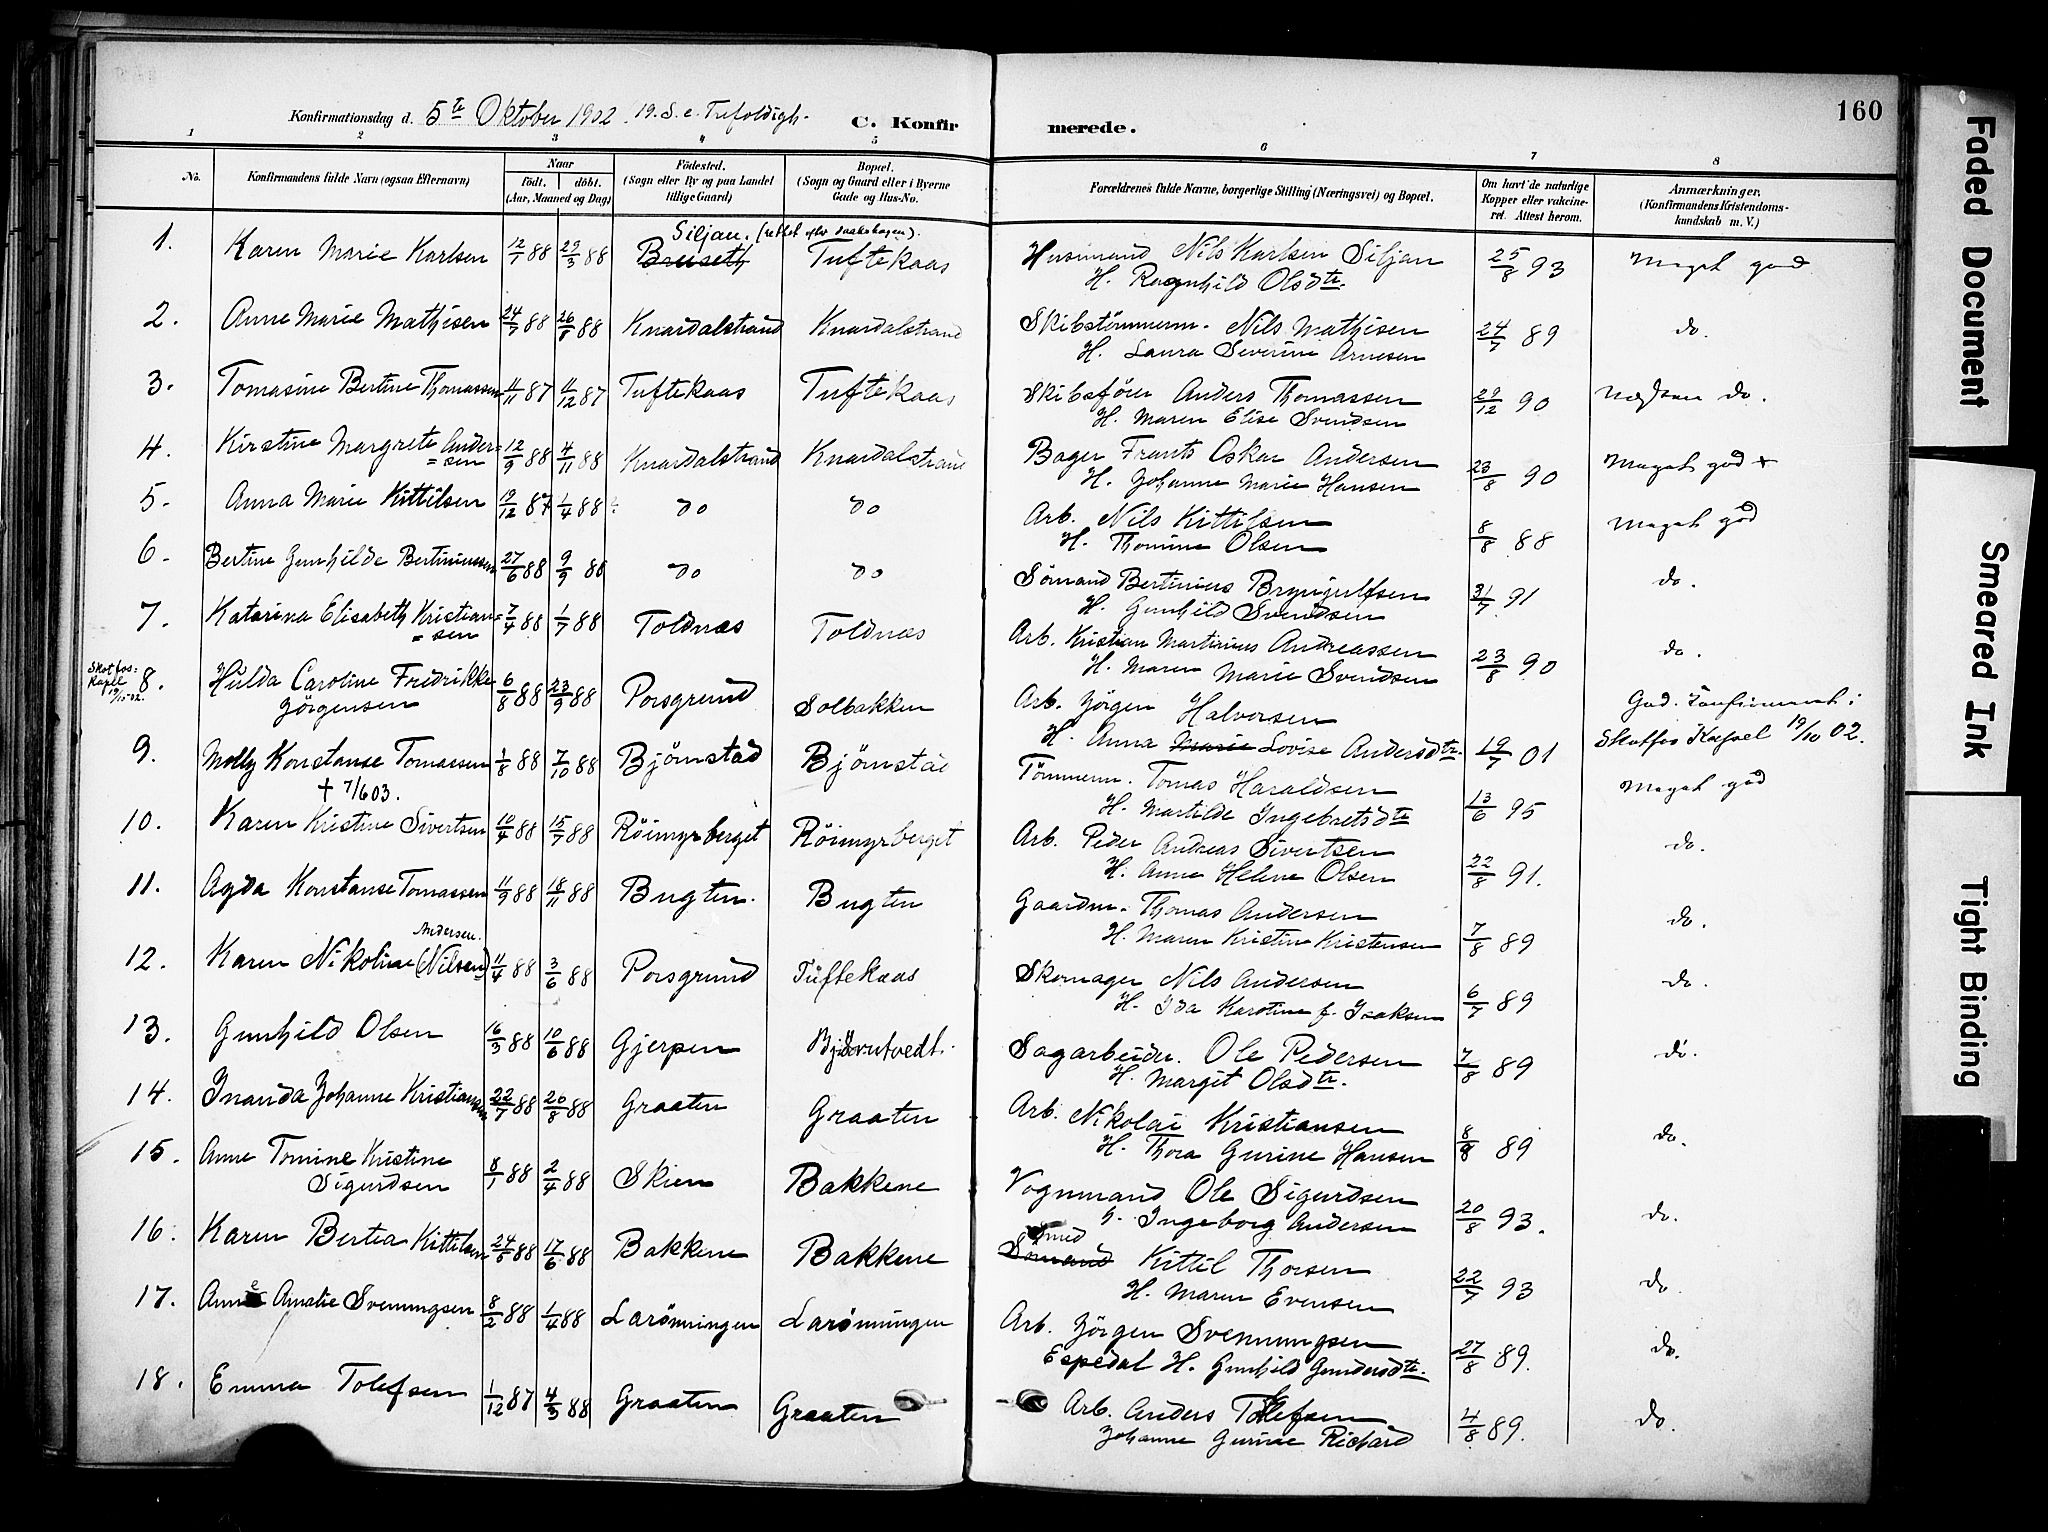 160
Konfirmationsdag d. 5te Oktober 1902. 19. S. e. Trefoldigh. C. Konfirmerede.
1 2 3 4 5 6 7 8
No. Konfirmandens fulde Navn (ogsaa Efternavn) Naar födt. döbt. (Aar, Maaned og Dag) Födested. (Sogn eller By og paa Landet tillige Gaard) Bopæl. (Sogn og Gaard eller i Byerne Gade og Hus-No. Forældrenes fulde Navne, borgerlige Stilling (Næringsvei) og Bopæl. Om havt de naturlige Kopper eller vakcineret. Attest herom. Anmærkninger. (Konfirmandens Kristendomskundskab m. V.)
Siljan. (rettet efter daabsbogen).
1. Karen Marie Karlsen 12/1 88 29/3 88 Bruseth Tuftekaas Husmand Nils Karlsen Siljan 25/8 93 Meget god
H. Ragnhild Olsdtr.
2. Anne Marie Mathisen 24/7 88 26/8 88 Knardalstrand Knardalstrand Skibstömmerm. Nils Mathisen 24/7 89 do.
H. Laura Severine Arnesen
3. Tomasine Bertine Thomassen 11/11 87 11/12 87 Tuftekaas Tuftekaas Skibsförer Anders Thomassen 29/12 90 Næsten do.
H. Maren Elise Svendsen
4. Kirstine Margrete Ander= 12/9 88 4/11 88 Knardalstrand Knardalstrand Bager Frants Oskar Andersen 23/8 90 Meget god +
=sen H. Johanne Marie Hansen
5. Anna Marie Kittilsen 19/12 87 1/4 88 do do Arb. Nils Kittilsen 8/8 88 Meget god
H. Thomine Olsen
6. Bertine Gunhilde Bertiniussen 27/6 88 9/9 88 do do Sömand Bertinius Brynjulfsen 31/7 91 do.
H. Gunhild Svendsen
7. Katarina Elisabeth Kristian= 7/4 88 1/7 88 Toldnæs Toldnæs Arb. Kristian Martinius Andreassen 23/8 90 do.
=sen H. Maren Marie Svendsen
Skotfos: Kapel 19/10-02.
8. Hulda Caroline Fredrikke 6/8 88 23/9 88 Porsgrund Solbakken Arb. Jörgen Halvorsen 19/7 01 God. Konfirmeret i
Jörgensen H. Anna Marie Lovise Andersdtr. Skotfos Kapel 19/10 02.
9. Molly Konstanse Tomassen 1/8 88 7/10 88 Björnstad Björnstad Tömmerm. Tomas Haraldsen 13/6 95 Meget god
+ 7/6 03. H. Martilde Ingebretsdtr
10. Karen Kristine Sivertsen 10/4 88 15/7 88 Röimyrberget Röimyrberget Arb. Peder Andreas Sivertsen 22/8 91. do.
H. Anne Helene Olsen
11. Agda Konstanse Tomassen 11/9 88 18/11 88 Bugten. Bugten Gaardm. Thomas Andersen 7/8 89 do.
H. Maren Kristine Kristensen
Andersen.
12. Karen Nikoline (Nilsen) 11/4 88 3/6 88 Porsgrund Tuftekaas Skomager Nils Andersen 6/7 89 do.
H. Ida Karoline f. Isaksen
13. Gunhild Olsen 16/3 88 10/6 88 Gjerpen Bjørntvedt. Sagarbeider. Ole Pedersen 7/8 89 do.
H. Margit Olsdtr.
14. Inanda Johanne Kristiansen 22/7 88 20/8 88 Graaten Graaten Arb. Nikolai Kristiansen 8/8 89 do.
H. Thora Gurine Hansen
15. Anne Tomine Kristine 8/1 88 2/4 88 Skien Bakkene Vognmand Ole Sigurdsen 20/8 93. do.
Sigurdsen H. Ingeborg Andersen
16. Karen Bertea Kittilsen 24/5 88 17/6 88 Bakkene Bakkene Smed Sömand Kittil Thorsen 22/7 93 do.
H. Maren Evensen
17. Anne Amalie Svenningsen 8/2 88 1/4 88 Larönningen Larönningen Arb. Jörgen Svenningsen 27/8 89. do.
Espedal H. Gunhild Gundersdtr.
18. Emma Tolefsen 1/12 87 4/3 88 Graaten Graaten Arb. Anders Tollefsen 4/8 89. do.
Johanne Gurine Richard
Faded Document
Smeared Ink
Tight Binding